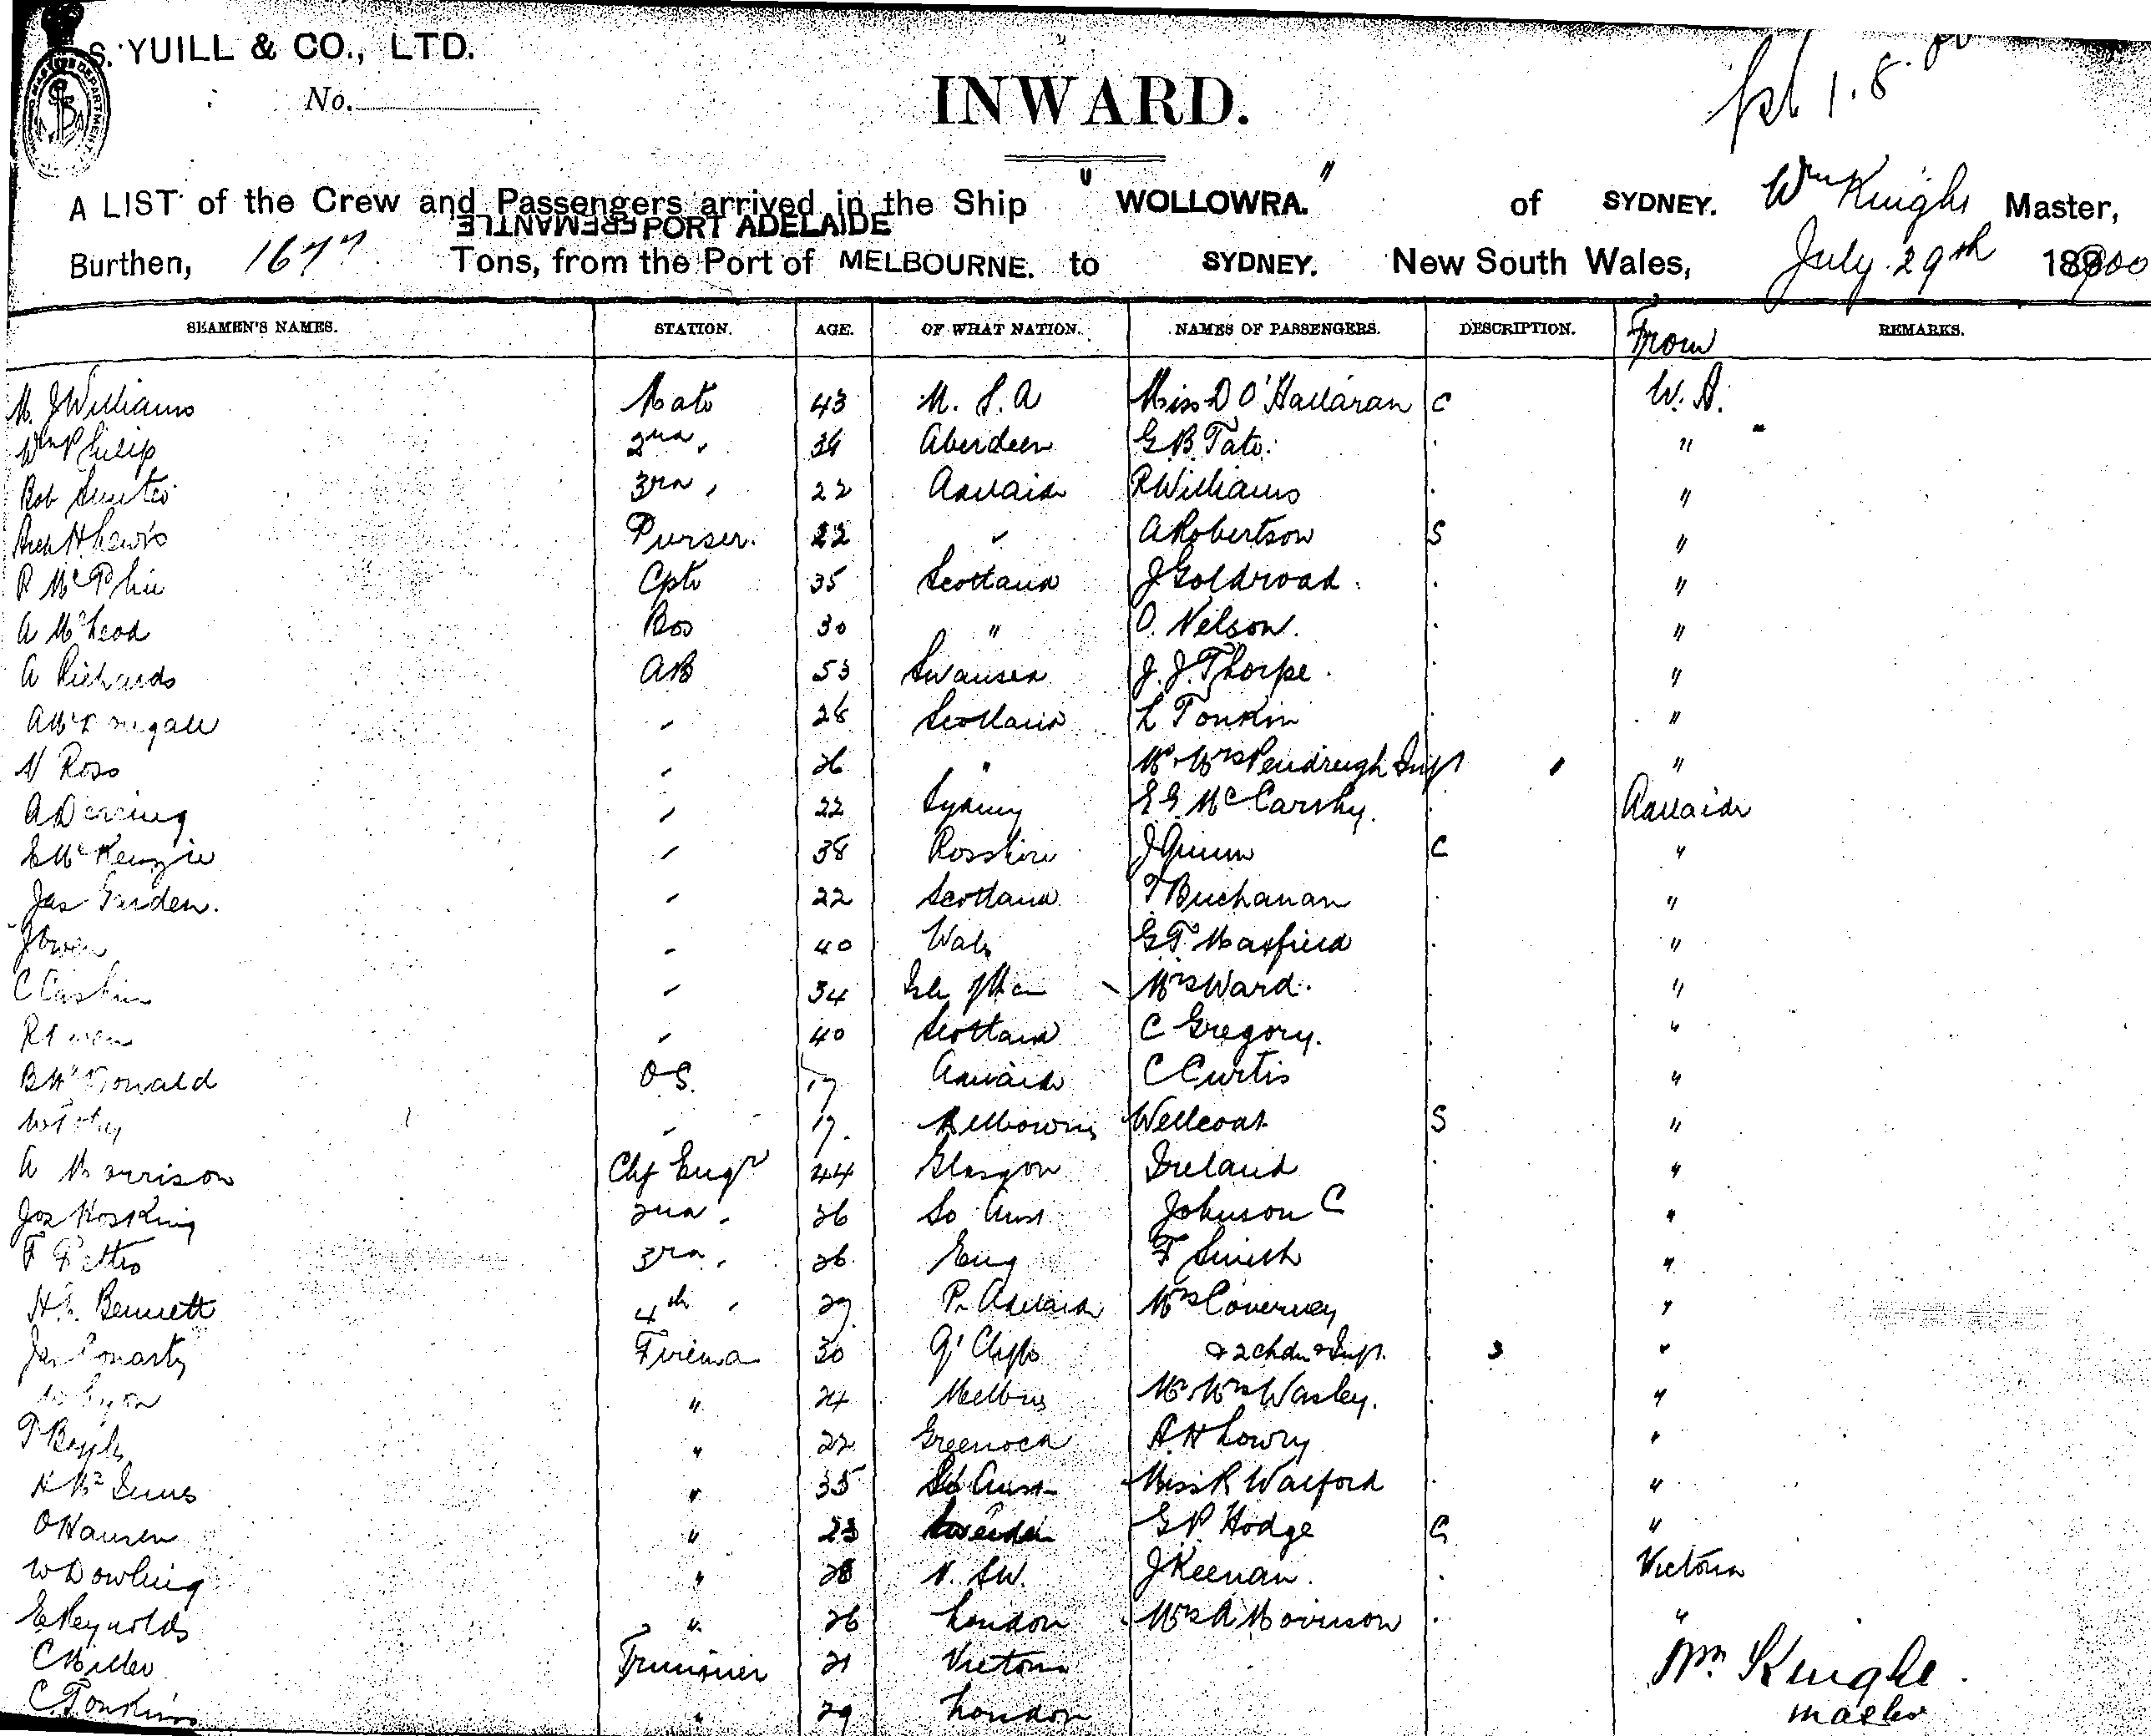 S. YUILL & CO., LTD.
No.
INWARD.
1.8.
A LIST of the Crew and Passengers arrived in the Ship " WOLLOWRA. " of SYDNEY. Wm Knight Master,
FREMANTLE PORT ADELAIDE
Burthen, 1677 Tons, from the Port of MELBOURNE. to SYDNEY. New South Wales, July 29th 1900
SEAMEN'S NAMES. STATION. AGE. OF WHAT NATION. NAMES OF PASSENGERS. DESCRIPTION. From REMARKS.
M. J Williams Mate 43 U. S. A Miss D O'Hallaran C W. A.
Wm Philip 2nd , 34 Aberdeen G. B. Tate. "
Rob 3rd , 22 Adelaide R Williams "
H Lewis Purser. 22 " A Robertson S "
R McPhie Cpte 35 Scotland J Goldroad. "
A McLeod Bos 30 " O. Nelson. "
A Richards AB 53 Swansea J. J. Thorpe. "
A McDougall " 28 Scotland L Tonkin "
N Ross " 26 " Mr & Mrs Pendreugh Inft "
A Derring " 22 Sydney E G. McCarthy. Adelaide
McKenzie " 38 Rosshire J Quinn C "
Jas Garden. " 22 Scotland T Buchanan "
J Owen " 40 Wales G T. Maxfield "
C Cashin " 34 Isle of Man Mrs Ward. "
" 40 Scotland C Gregory. "
B McDonald OS. 17 Adelaide C Curtis "
" 17. Melbourne Wellcoat S "
A Morrison Chf Engr 44 Glasgow Ireland "
Jos Hosking 2nd , 26 So Aust Johnson C "
F Pettis 3rd , 26 Eng F Smith "
H. Bennett 4th , 29 Pt Adelaide Mrs Coverney "
Jas Conarty Firema 30 G' Cliffe & 2 chdn & Inft. 3 "
" 24 Melbne Mr & Mrs Wasley. "
T " 22 Greenock A H Lowry "
H McInnes " 35 So Aust Miss R Walford "
O Hansen " 23 Sweden G P. Hodge C "
W Dowling " 28 N. SW. J Keenan. Victoria
E Reynolds " 26 London Mrs A Morrison "
C Miller Trimmer 21 Victoria Wm Knight
C. Tonkins " 29 London master